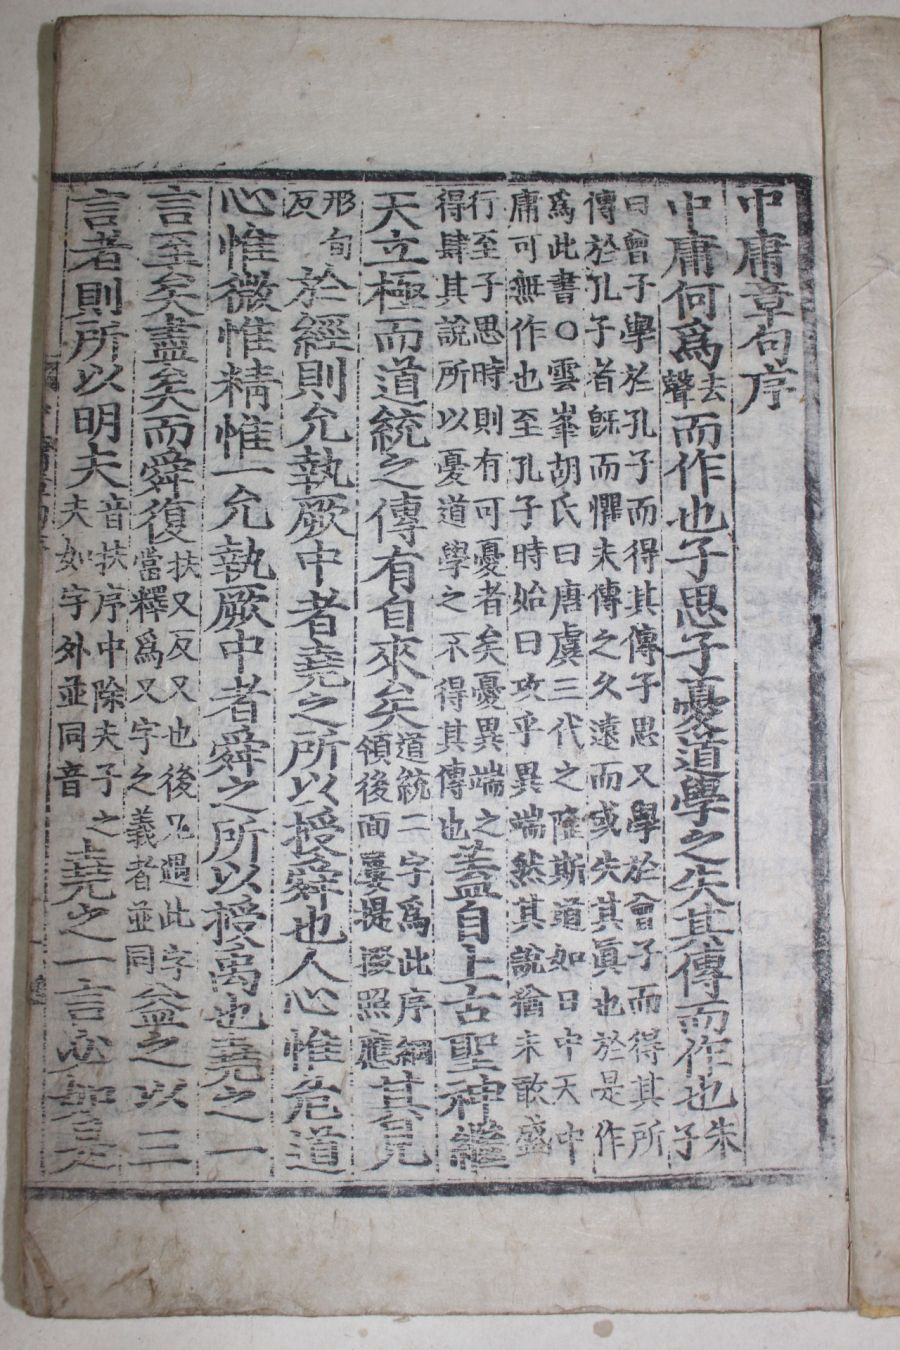 中庸章句序
中庸何爲去聲而作也子思子憂道學之失其傳而作也朱子
曰曾子學於孔子而得其傳子思又學於曾子而得其所
傳於孔子者旣而懼夫傳之久遠而或失其眞也於是作
爲此書○雲峯胡氏曰唐虞三代之隆斯道如日中天中
庸可無作也至孔子時始曰攻乎異端然其說猶未敢盛
行至子思時則有可憂者矣憂異端之
得肆其說所以憂道學之不得其傳也盖自上古聖神繼
天立極而道統之傳有自來矣道統二字爲此序綱
領後面屢提掇照應其見
形甸
反於經則允執厥中者堯之所以授舜也人心惟危道
心惟微惟精惟一允執厥中者舜之所以授禹也堯之一
言至矣盡矣而舜復扶又反又也後凡遇此字
當釋爲又字之義者並同益之以三
言者則所以明夫音扶序中除夫子之
夫如字外並同音堯之一言必如是